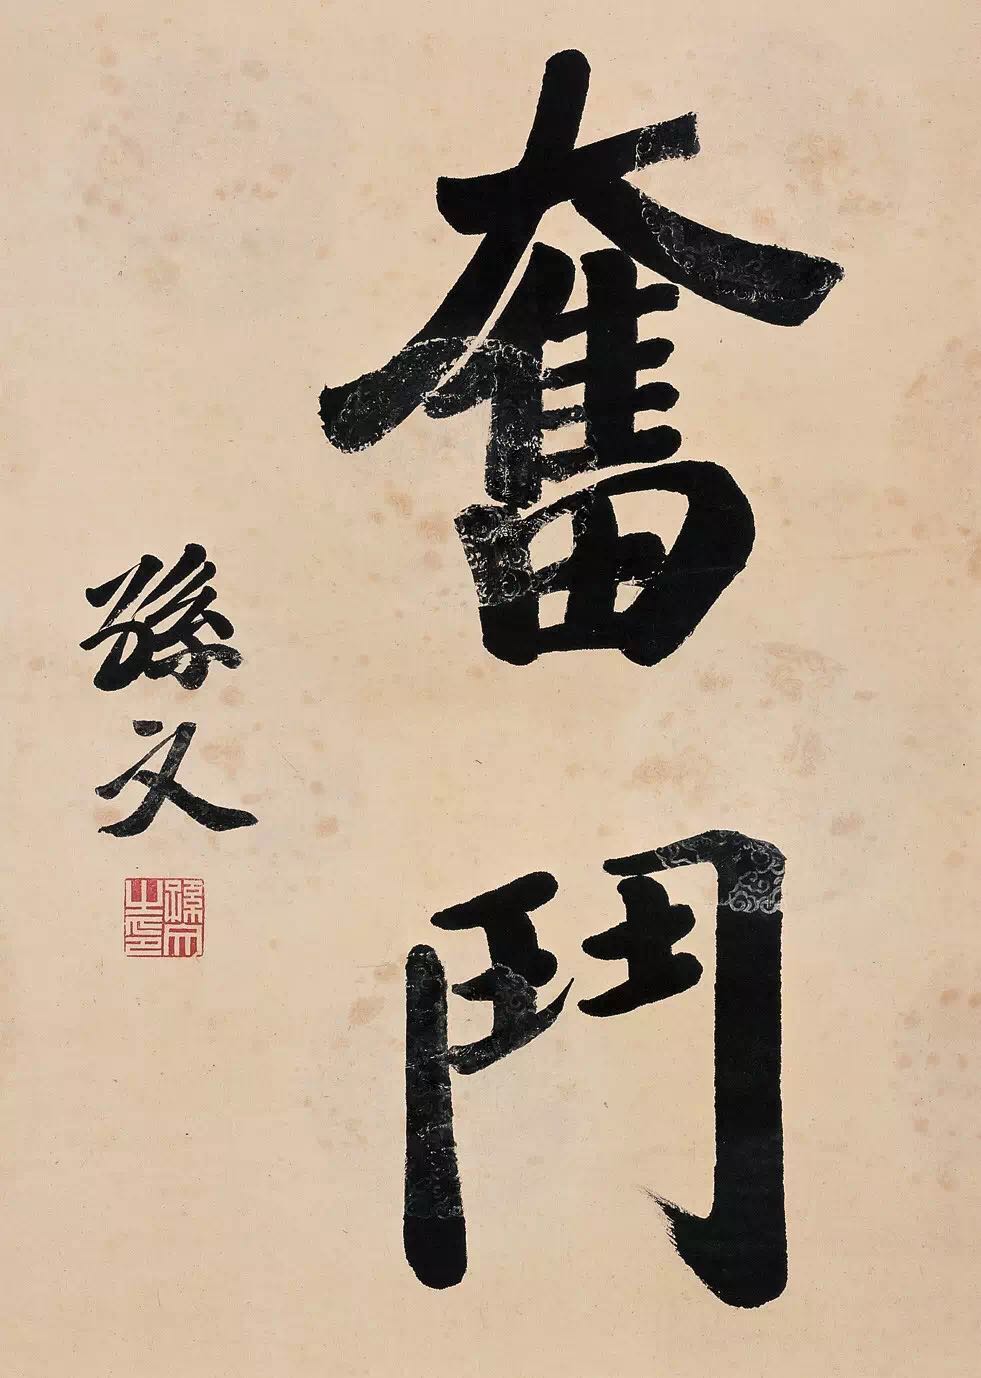 奮鬥
孫文
孫文之印